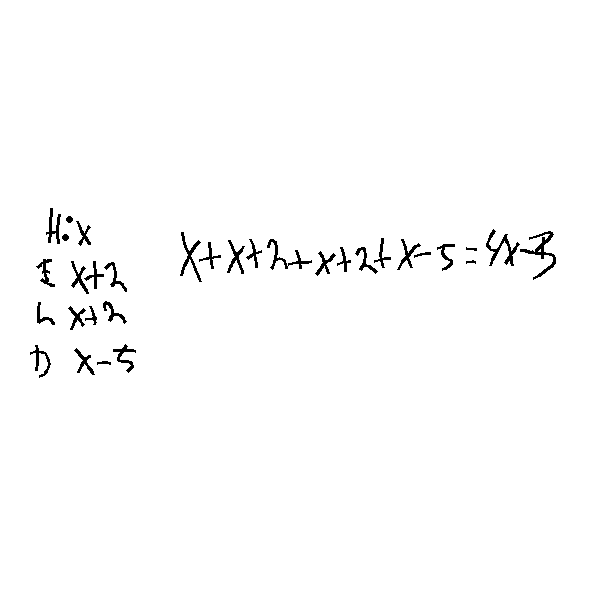 H: x
E x+2
L x+2
D x-5
x+x+2+x+2+x-5=4x-3